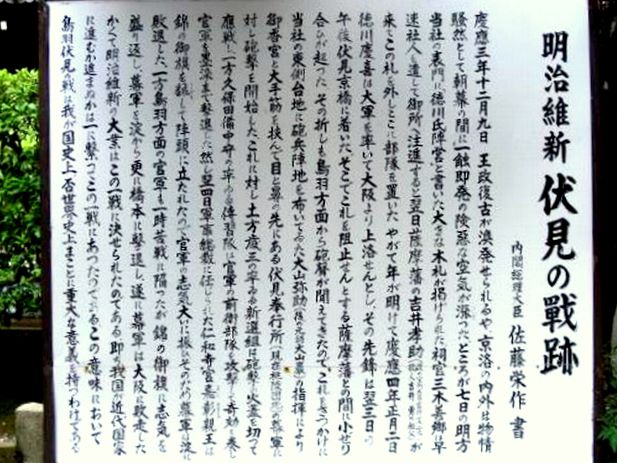 明治維新 伏見の戦跡
内閣総理大臣 佐藤栄作 書
慶應三年十二月九日 王政復古が渙発せられるや京洛の内外は物情
騒然として朝幕の間に一触即発の険悪な空気が漲つた ところが七日の明方
当社の表門に徳川氏陣営と書いた大きな木札が掲げられた 祠官三木善郷は早
速社人を遣して御所へ注進すると翌日薩摩藩の吉井孝助 が
来てこの札を外しここに部隊を置いた やがて年が明けて慶應四年正月二日
徳川慶喜は大軍を率いて大阪より上洛せんとし、その先鋒は翌三日の
午後伏見京橋に着いた そこでこれを阻止せんとする薩摩藩との間に小ぜり
合ひが起つた その折しも鳥羽方面から砲声が聞えてきたので、これをきつかけに
当社の東側台地に砲兵陣地を布いてゐた大山弥助 の指揮により
御香宮と大手筋を挟んで目と鼻の先にある伏見奉行所 の幕軍に
対し砲撃を開始した、これに対し土方歳三の率ゐる新選組は砲撃の火蓋を切つて
應戦し 一方久保田備中守の率ゐる伝習隊は官軍の前衛部隊を攻撃して奇効を奏し
官軍を墨染まで撃退した 然し翌四日軍事総裁に任じられた仁和寺宮嘉彰親王は
錦の御旗を飜して陣頭に立たれたので官軍の志気大いに振ひ そのため幕軍は淀に
敗退した、一方鳥羽方面の官軍も一時苦戦に陥つたが錦の御旗に志気を
盛り返し 幕軍を淀から更に橋本に撃退し遂に幕軍は大阪に敗走した
かくて明治維新の大業はこの一戦に決せられたのである 即ち我国が近代国家
に進むか進まぬかは一に繋つてこの一戦にあつたのである この意味において
鳥羽伏見の戦は我が国史上 否世界史上まことに重大な意義を持つわけである